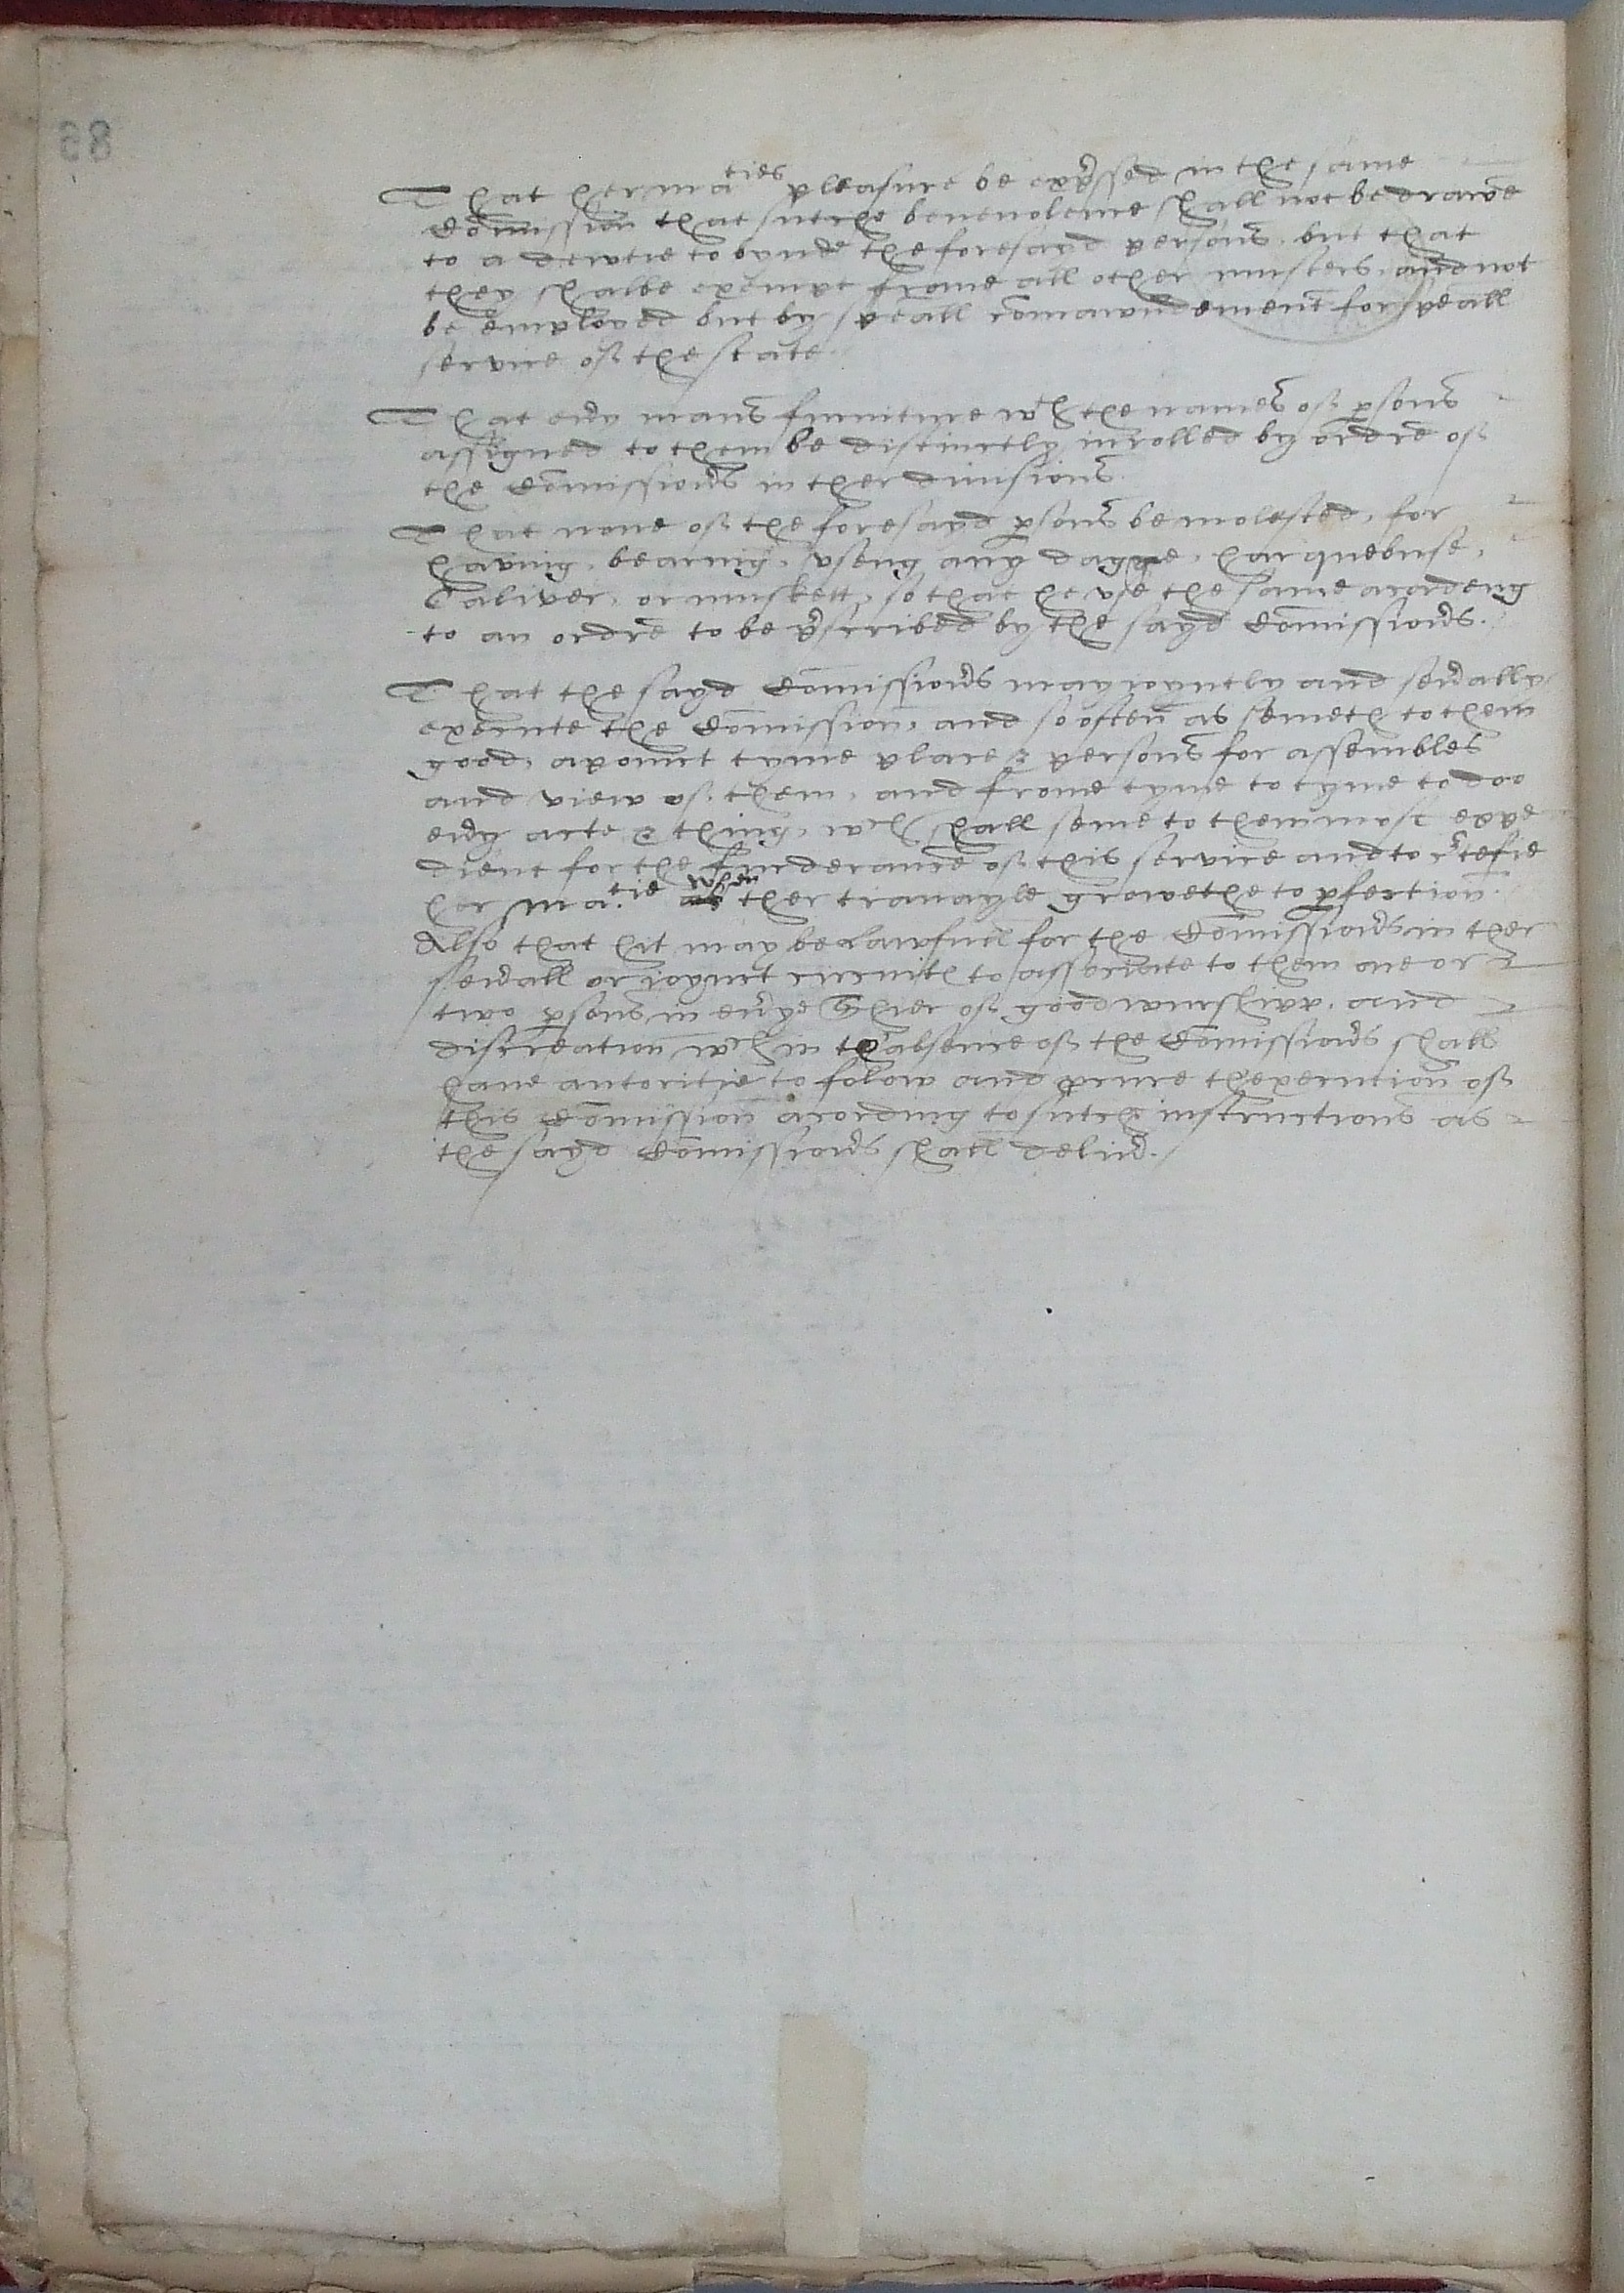 That her maties pleasure be exp̃ssed in the same
Com̃ission that sutche beneuolence shall not be drawẽ
to a dewtie to bynde the foresayd persons, but that
they shalbe exempt frome all other musters, and not
be employed but by speall comaundement for speall
service off the state.
That eũy mans furniture wth the names off ꝑsons
assigned to them be distinctly inrolled by ordre off
the Com̃issiõrs in ther diuisions.
That none off the foresayd ꝑsons be molested, for
having, bearing, vseng any dagge, harquebuse,
Caliver, or muskett, so that he vse the same acordeng
to an ordre to be p̃scribed by the sayd Com̃issiõrs.
That the sayd Com̃issiõrs may ioyntly and seũally
execute the Com̃ission, and so often as semeth to them
good, apoinct tyme place & persons for assembles
and view off them, and frome tyme to tyme to doo
eũy acte & thing, wch shall seme to them most expe
dient for the furderance off this service and to c̃tefie
her Matie when ther trauayle growethe to ꝑfection.
Also that hit may be lawfull for the Com̃issiõrs in ther
seũall or ioynct circuith to assosciate to them one or
two ꝑsons in eũye Shier off good wurshipp, and
discreation wch in th'absence off the Com̃issiõrs shall
haue autoritie to folow and ꝓcure thexecution off
this Com̃ission acording to sutche instructions as
the sayd Com̃issiõrs shall deliũ.